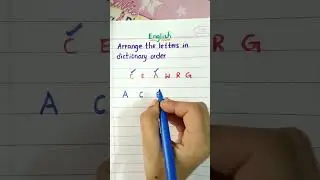 English
Arrange the letters in
dictionary order
C E A W R G
A C